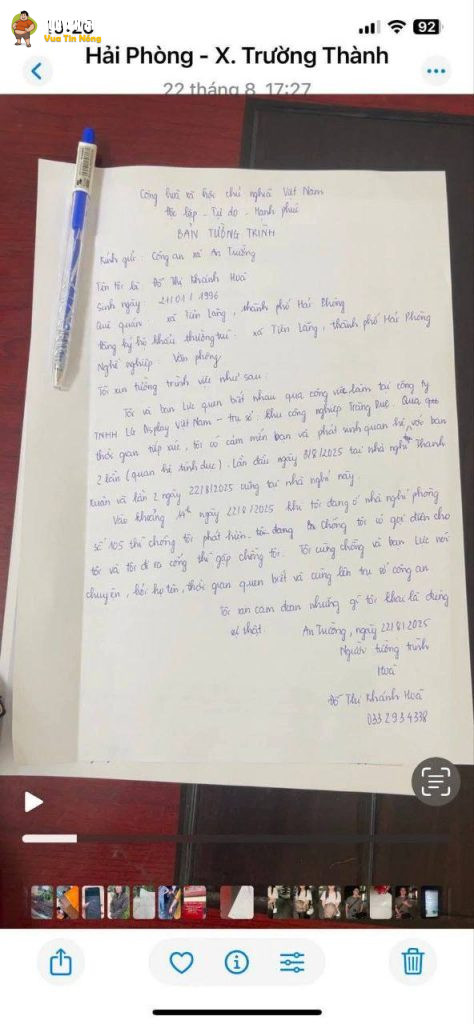 18:26
92
Vua Tin Nóng
Hải Phòng - X. Trường Thành
22 tháng 8 17:27
Cộng hoà xã hội chủ nghĩa Việt Nam
Độc lập - Tự do - Hạnh phúc
BẢN TƯỜNG TRÌNH
Kính gửi: Công an xã An Trường
Tên tôi là Đỗ Thị Khánh Hoà
Sinh ngày: 21/01/1996
Quê quán: xã Tiên Lãng, thành phố Hải Phòng
Đăng ký hộ khẩu thường trú: xã Tiên Lãng, thành phố Hải Phòng
Nghề nghiệp: Văn phòng
Tôi xin tường trình việc như sau:
Tôi và bạn Lực quen biết nhau qua công việc làm tại công ty
TNHH LG Display Việt Nam - trụ sở: khu công nghiệp Tràng Duệ. Qua
thời gian tiếp xúc, tôi có cảm mến bạn và phát sinh quan hệ với bạn
2 lần (quan hệ tình dục). Lần đầu ngày 8/8/2025 tại nhà nghỉ Thanh
Xuân và lần 2 ngày 22/8/2025 cũng tại nhà nghỉ này.
Vào khoảng 14h ngày 22/8/2025 khi tôi đang ở nhà nghỉ phòng
số 105 thì chồng tôi phát hiện. Chồng tôi có gọi điện cho
tôi và tôi đi ra cổng thì gặp chồng tôi. Tôi cùng chồng và bạn Lực nói
chuyện, hỏi họ tên, thời gian quen biết và cùng lên trụ sở công an
Tôi xin cam đoan những gì tôi khai là đúng
sự thật.
An Trường, ngày 22/8/2025
Người tường trình
Hoà
Đỗ Thị Khánh Hoà
0332934338